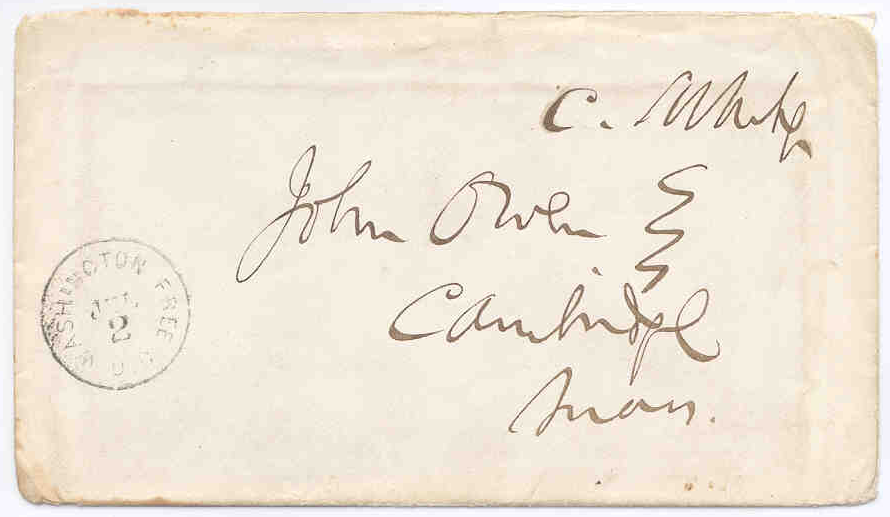 C.
John Owen Esq
Cambridge
Mass.
WASHINGTON FREE
JUL.
2
D.C.